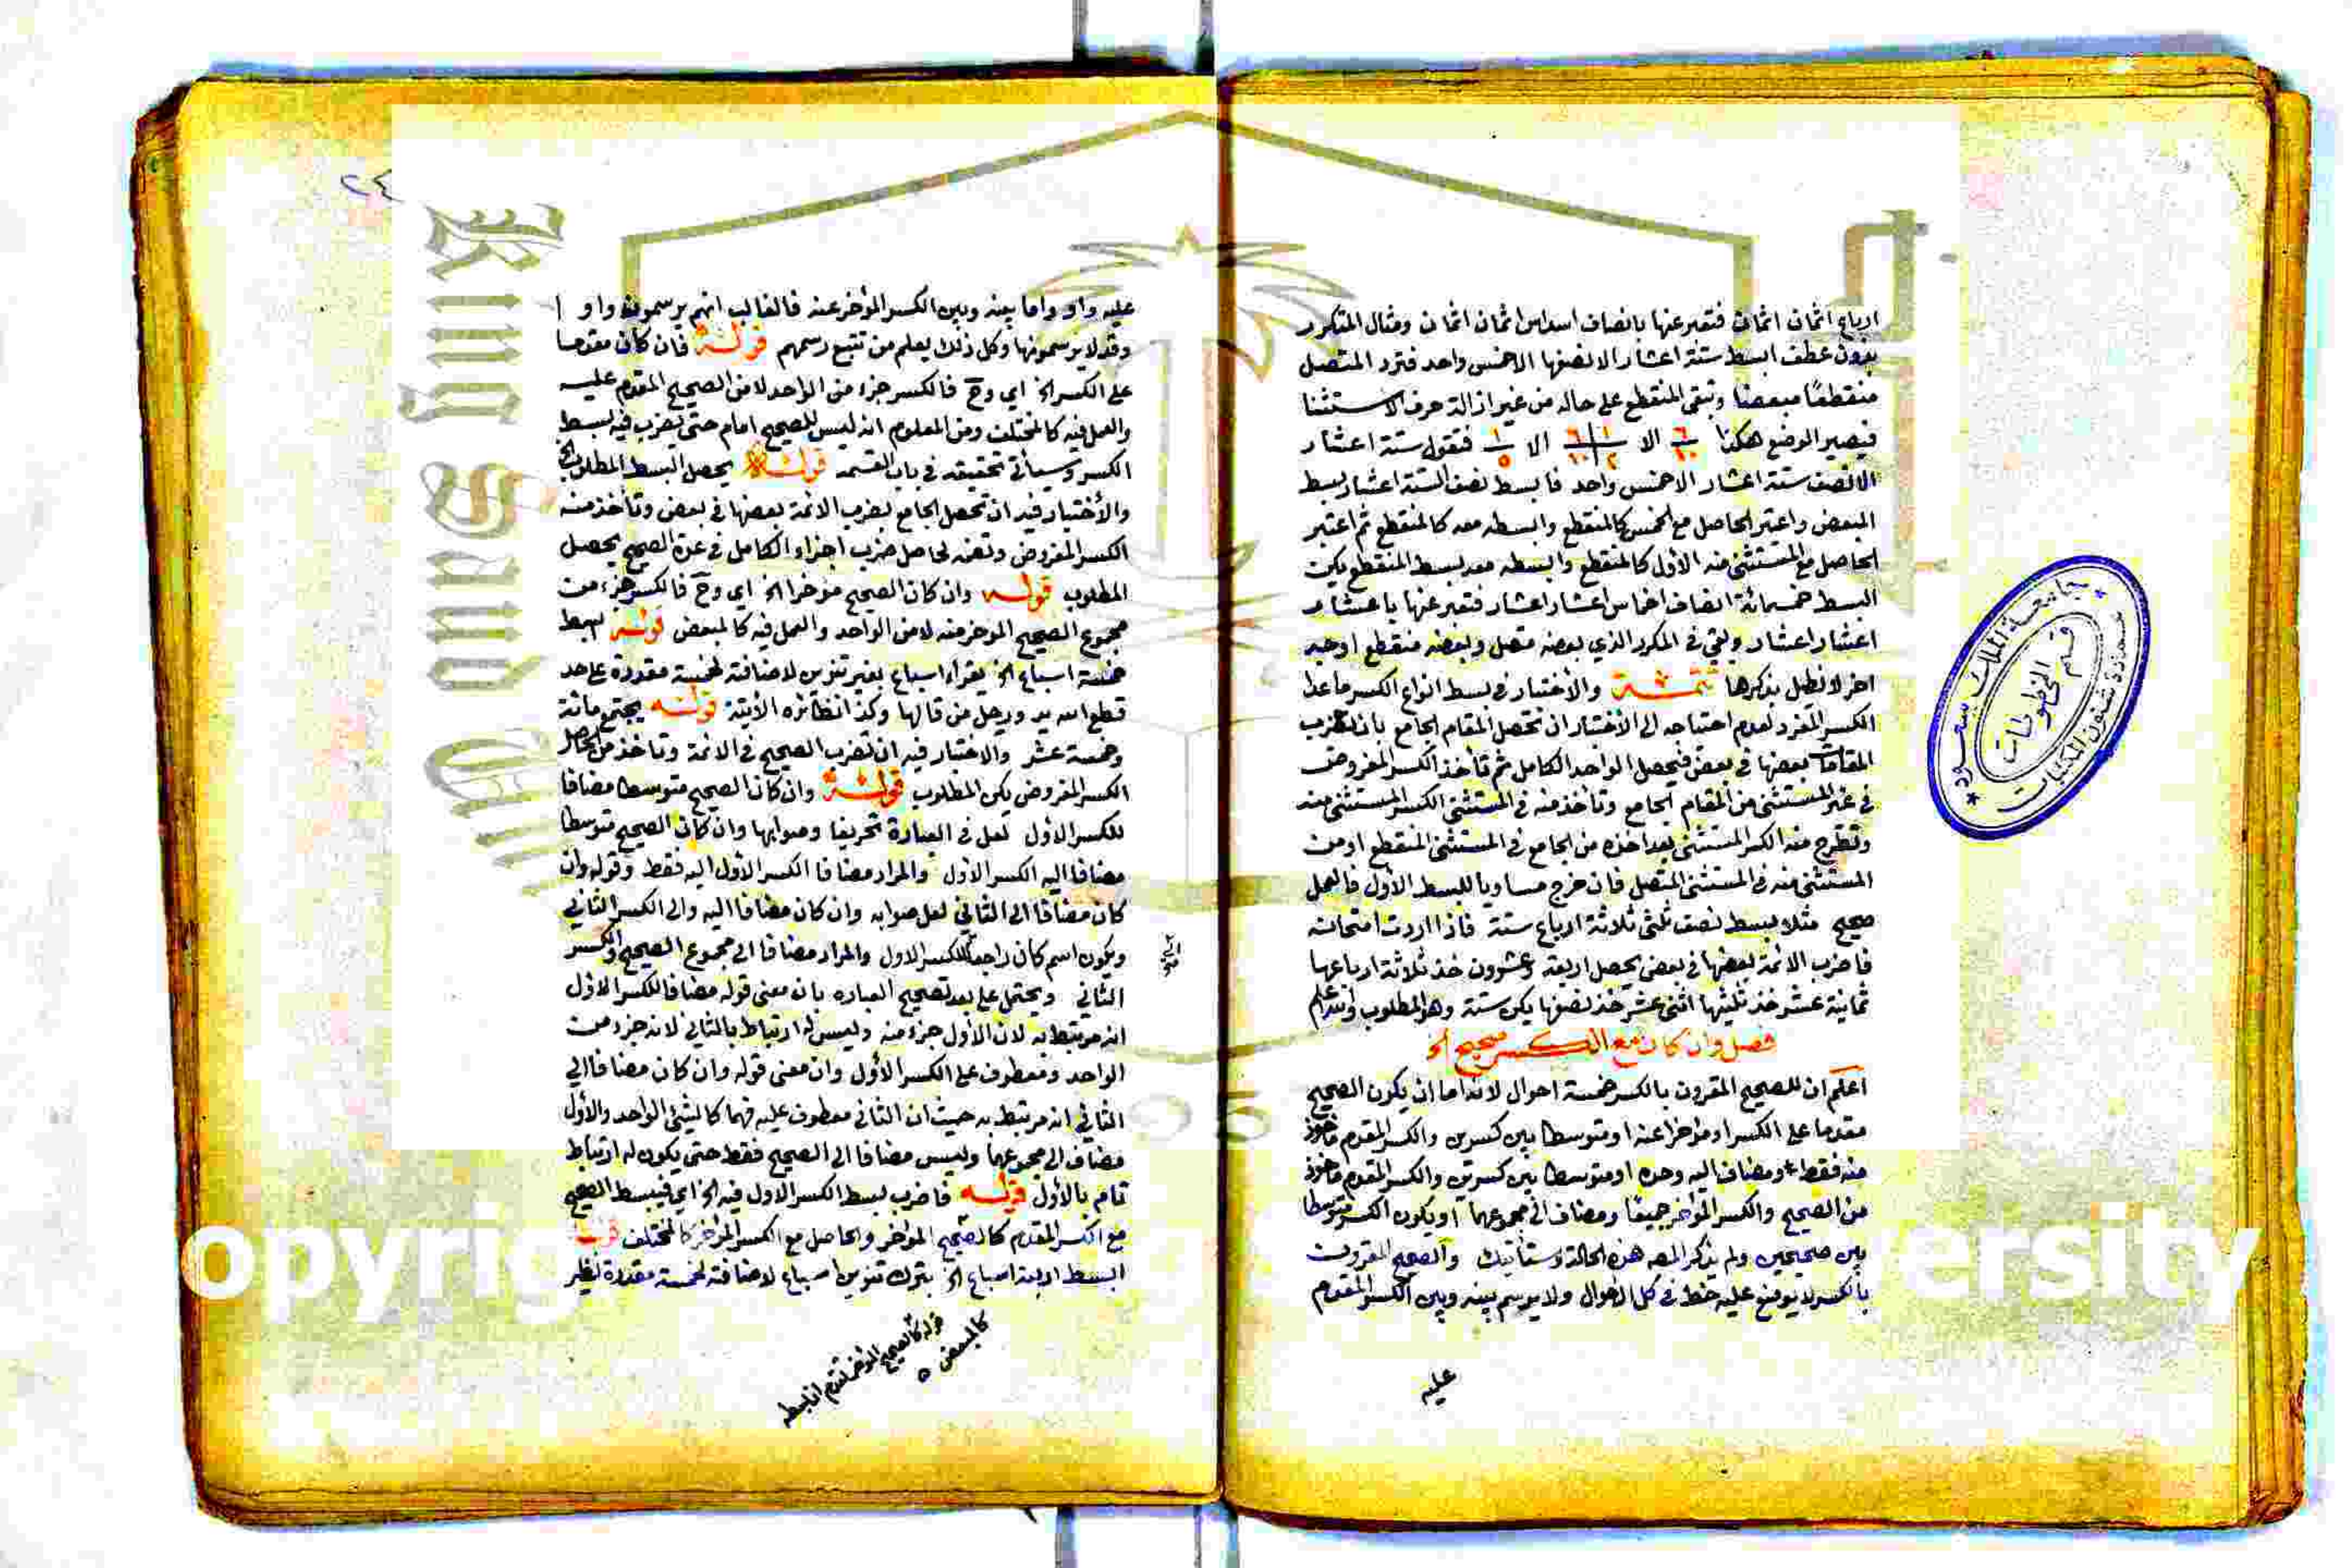 ارباع اثمان اثمان فتعبر عنها بانصاف اسداس اثمان اثمان ومثال المتكرر
بدون عطف ابسط ستة اعشار الا نصفها الا خمس واحد فترد المتصل
منقطعًا مبعضا وتبقى المنقطع على حاله من غير ازالة حرف الاستثنا
فيصير الوضع هكذا ٦/١٠ الا ١/٢ ٦/١٠ الا ١/٥ فتقول ستة اعشار
الا نصف ستة اعشار الا خمس واحد فابسط نصف الستة اعشار بسط
المبعض واعتبر الحاصل مع الخمس كالمنقطع وابسطه معه كالمنقطع ثم اعتبر
الحاصل مع المستثنى منه الأول كالمنقطع وابسطه معه بسط المنقطع يكن
البسط خمسمائة انصاف اخماس اعشار اعشار فتعبر عنها باعشار
اعشار اعشار وبقي في المكرر الذي بعضه متصل وبعضه منقطع اوجه
اخر لا نطيل بذكرها تتمة والأختبار في بسط انواع الكسر ماعدا
الكسر المفرد لعدم احتياجه الى الأختبار ان تحصل المقام الجامع بان تضرب
المقامات بعضها في بعض فيحصل الواحد الكامل ثم تأخذ الكسر المفروض
في غير المستثنى من المقام الجامع وتأخذ منه في المستثنى الكسر المستثنى منه
وتطرح منه الكسر المستثنى بعد اخذه من الجامع في المستثنى المنقطع او من
المستثنى منه في المستثنى المتصل فان خرج مساويا للبسط الأول فالعمل
صحيح مثلا بسط نصف ثلثي ثلاثة ارباع ستة فاذا اردت امتحانه
فاضرب الائمة بعضها في بعض يحصل اربعة وعشرون خذ ثلاثة ارباعها
ثمانية عشر خذ ثلثيها اثنى عشر خذ نصفها يكن ستة وهو المطلوب والله اعلم
فصل وان كان مع الكسر صحيح الخ
اعلم ان للصحيح المقرون بالكسر خمسة احوال لانه اما ان يكون الصحيح
مقدما على الكسر او مؤخرا عنه او متوسطا بين كسرين والكسر المقدم مأخوذ
منه فقط ومضاف اليه وحده او متوسطا بين كسرين والكسر المقدم مأخوذ
من الصحيح والكسر المؤخر جميعًا ومضاف الى مجموعهما او يكون الكسر متوسطا
بين صحيحين ولم يذكر المصـ هذه الحالة وستأتيك والصحيح المقرون
بالكسر لا يوضع عليه خط في كل الأحوال ولا يرسم بينه وبين الكسر المقدم
عليه
٢٤
عليه واو واما بينه وبين الكسر المؤخر عنه فالغالب انهم يرسمون واو
وقد لا يرسمونها وكل ذلك يعلم من تتبع رسمهم قوله فان كان مقدما
على الكسر الخ اي وح فالكسر جزء من الواحد لا من الصحيح المقدم عليه
والعمل فيه كالمختلف ومن المعلوم انه ليس للصحيح امام حتى يضرب فيه بسط
الكسر وسيأتي تحقيقه في باب القسمة قوله يحصل البسط المطلوب الخ
والأختبار فيه ان تحصل الجامع بضرب الائمة بعضها في بعض وتأخذ منه
الكسر المفروض وتضمه لحاصل ضرب اجزاء الكامل في عدة الصحيح يحصل
المطلوب قوله وان كان الصحيح مؤخرا الخ اي وح فالكسر جزء من
مجموع الصحيح المؤخر منه لا من الواحد والعمل فيه كالمبعض قوله بسط
خمسة اسباع الخ يقراء اسباع بغير تنوين لاضافة لخمسة مقدرة على حد
قطع الله يد ورجل من قالها وكذا نظائره الأتية قوله يجتمع مائة
وخمسة عشر والاختبار فيه ان تضرب الصحيح في الائمة وتأخذ من الحاصل
الكسر المفروض يكن المطلوب قوله وان كان الصحيح متوسطا مضافا
للكسر الأول لعل في العبارة تحريفا وصوابها وان كان الصحيح متوسطا
مضافا اليه الكسر الأول والمراد مضافا الكسر الأول اليه فقط وقوله وان
كان مضافا الى الثاني لعل صوابه وان كان مضافا اليه والى الكسر الثاني
ويكون اسم كان راجعا للكسر الاول والمراد مضافا الى مجموع الصحيح والكسر
الثاني ويحتمل على بعد تصحيح العبارة بان معنى قوله مضافا للكسر الأول
انه مرتبط به لان الأول جزء منه وليس له ارتباط بالثاني لانه جزء من
الواحد ومعطوف على الكسر الأول وان معنى قوله وان كان مضافا الى
الثاني انه مرتبط به حيث ان الثاني معطوف عليه فهما كالشئ الواحد والأول
مضاف الى مجموعهما وليس مضافا الى الصحيح فقط حتى يكون له ارتباط
تام بالأول قوله فاضرب بسط الكسر الاول فيه الخ اي فيبسط الصحيح
مع الكسر المقدم كالصحيح المؤخر والحاصل مع الكسر المؤخر كالمختلف قوله
البسط اربعة اسباع الخ بترك تنوين اسباع لاضافته لخمسة مقدرة نظير
قوله كالصحيح المؤخر تقدم انا نبسطه
كالمبعض ه
جامعة الملك سعود
عمادة شئون المكتبات
قسم المخطوطات
King Saud
opyrig
ersity